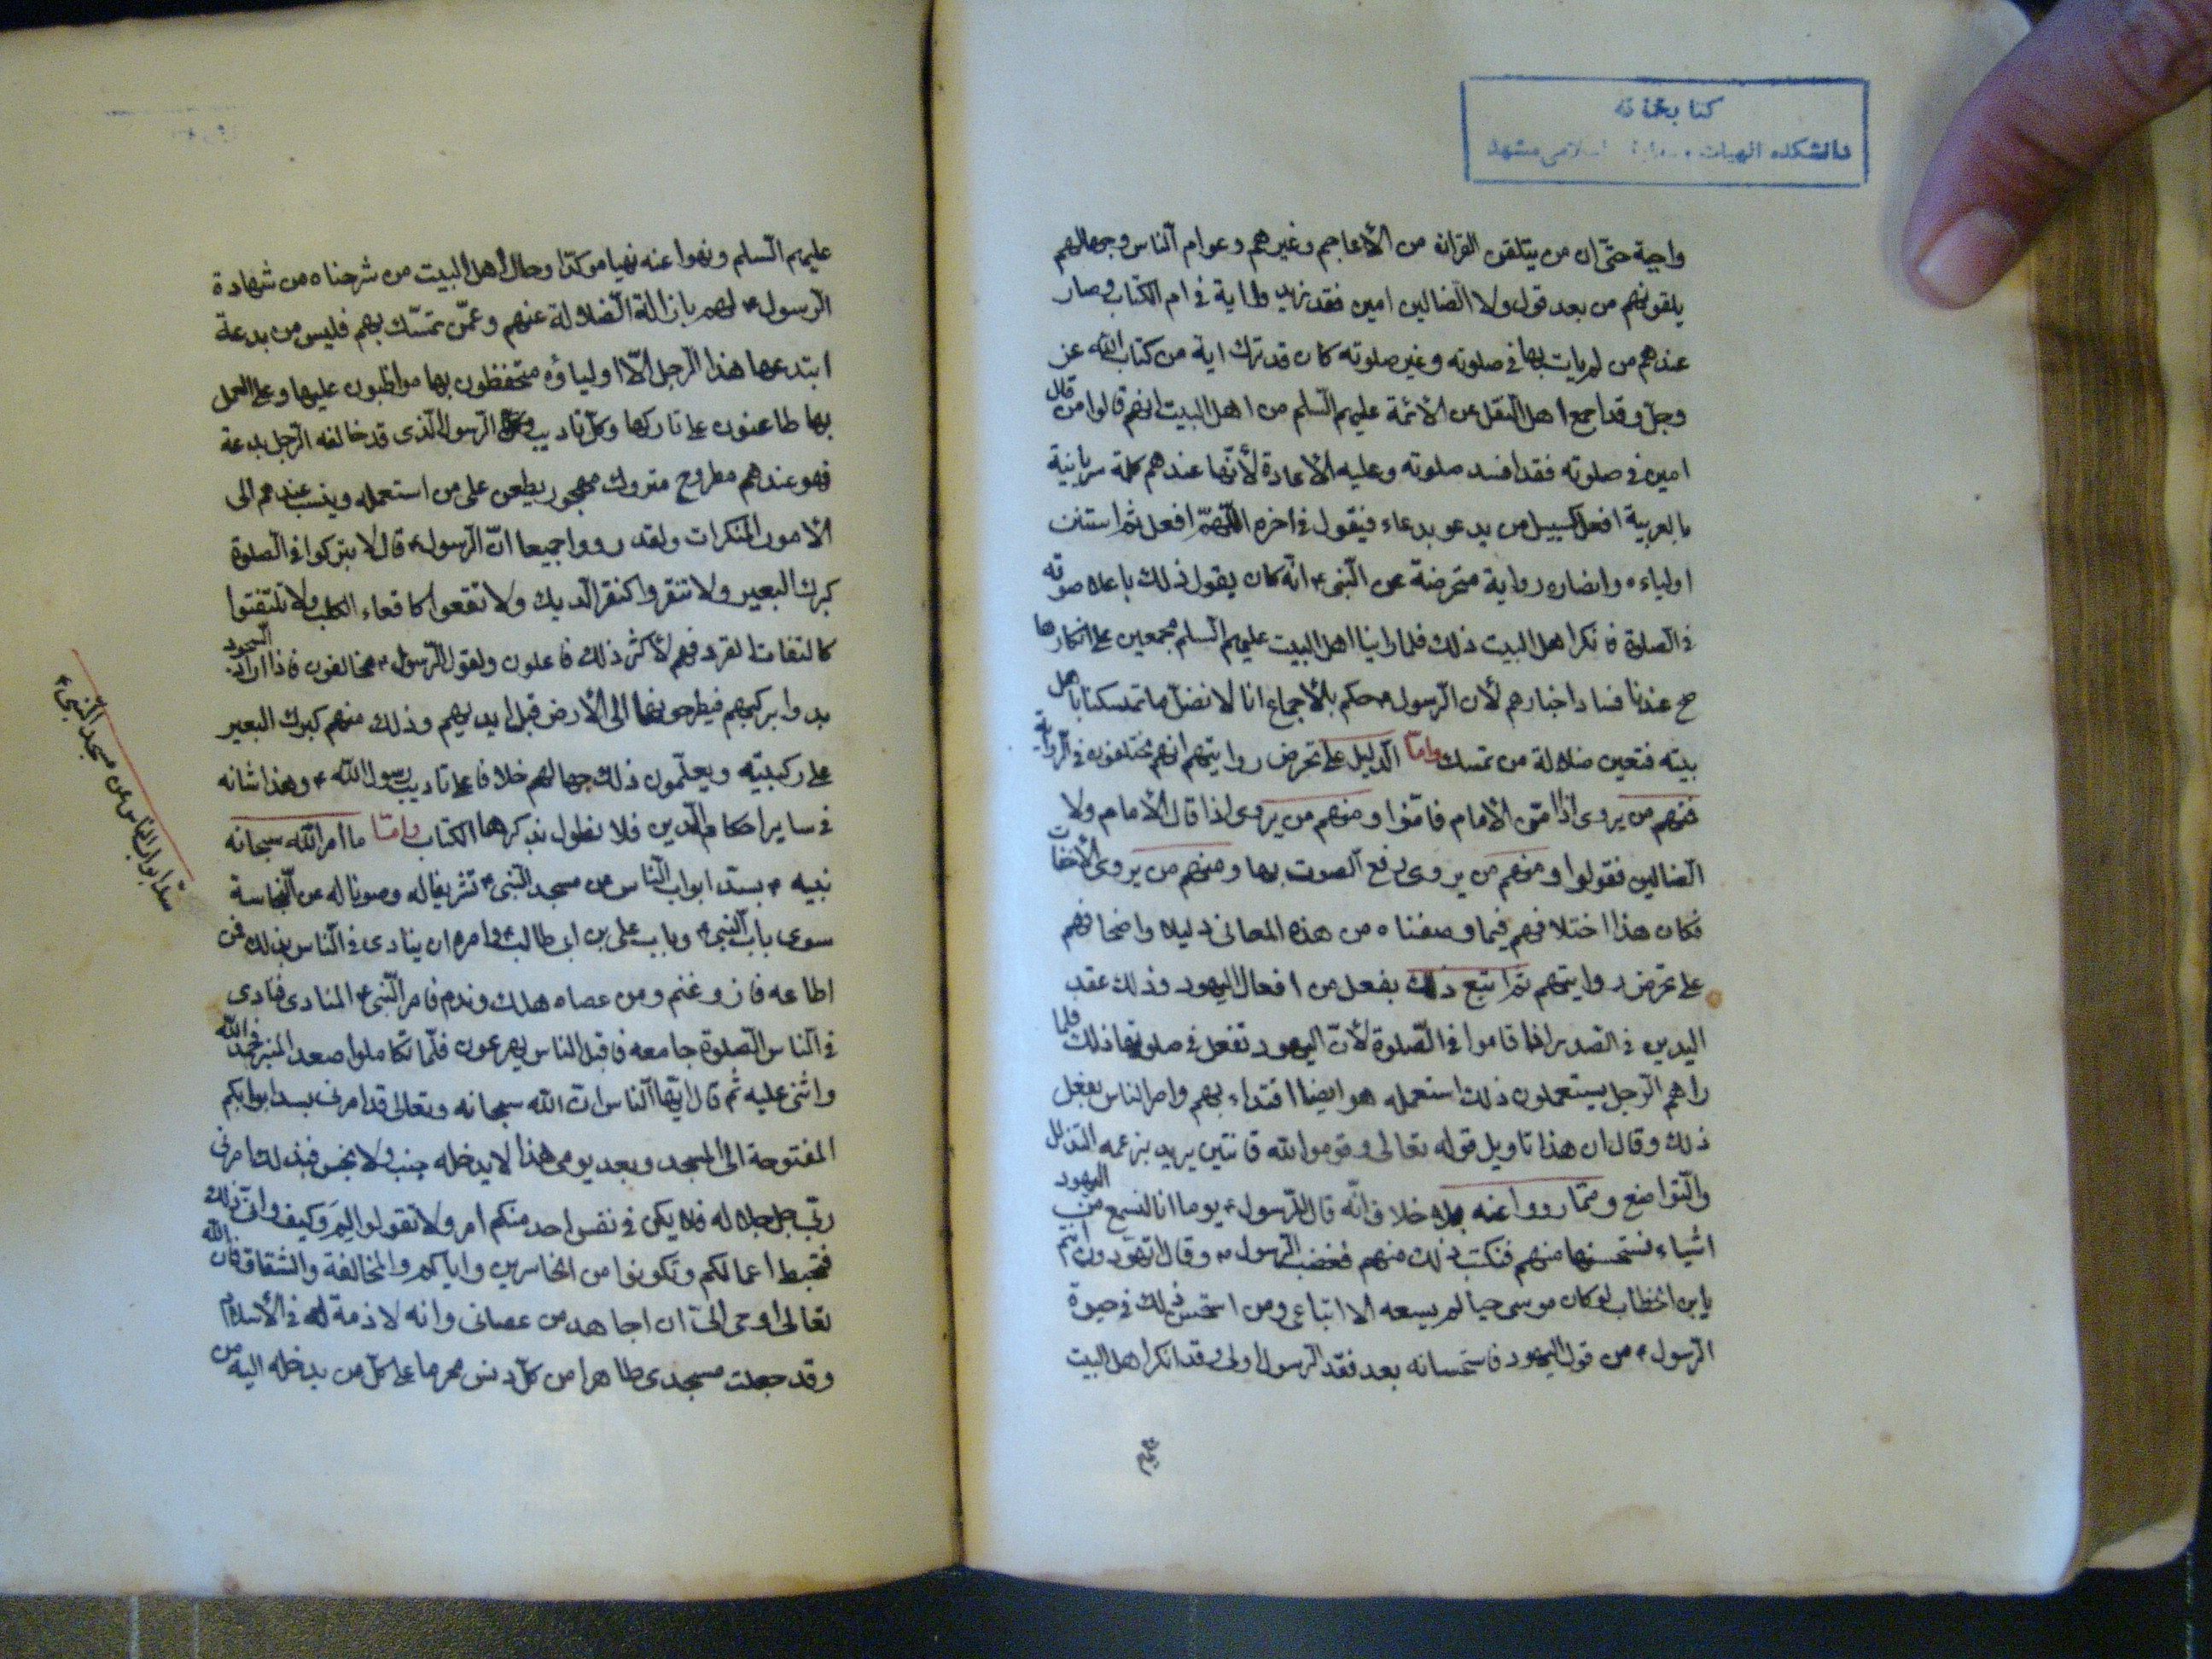 كتابخانه
دانشكده الهيات و معارف اسلامى مشهد
واجبة حتّى ان من يتلقن القرآنه من الأعاجم وغيرهم وعوام النّاس وجهالهم
يلقونهم من بعد قول ولا الضّالين امين فقد زيد آية فى ام الكتاب وصار
عندهم من لم يات بها فى صلوته وغير صلوته كان قد ترك اية من كتاب الله عز
وجلّ وقد اجمع اهل النّقل عن الأئمة عليهم السّلم من اهل البيت انهم قالوا من قال
امين فى صلوته فقد افسد صلوته وعليه الأعادة لأنّها عندهم كلمة سريانية
بالعربية افعل كسبيل من يدعو بدعاء فيقول فى اخره اللّهمّ افعل ثم استنت
اولياءه وانصاره رواية متخرضة عن النّبى انّه كان يقول ذلك باعلا صوته
فى الصلوة فانكر اهل البيت ذلك فلما راينا اهل البيت عليهم السلم مجمعين على انكارها
صح عندنا فساد اخبارهم لأن الرّسول حكم بالأجماع انا لا نضلّ ما تمسكنا باهل
بيته فتعين ضلالة من تمسك وامّا الدّليل على تخرض روايتهم انهم مختلفون فى الرّواية
فمنهم من يروى اذا امّن الأمام فامّنوا ومنهم من يروى اذا قال الأمام ولا
الضالين فقولوا ومنهم من يروى برفع الصوت بها ومنهم من يروى الأخفات
فكان هذا اختلافهم فيما وصفناه من هذه المعانى دليلا واضحا فهم
على تخرض روايتهم ثم اتبع ذلك بفعل من افعال اليهود وذلك عقد
اليدين فى الصدر اذا قاموا فى الصّلوة لأنّ اليهود تفعل فى صلوتها ذلك فلما
راهم الرّجل يستعملون ذلك استعمله هو ايضا اقتداء بهم وامر الناس بفعل
ذلك وقال ان هذا تاويل قوله تعالى وقوموا لله قانتين يريد بزعمه التذلل
والتّواضع وممّا رووا عنه بلا خلاف انّه قال للرّسول يوما انا لنسمع من اليهود
اشياء نستحسنها منهم فنكتب ذلك منهم فغضب الرسول وقال اتهوّدون انتم
يا بن الخطاب لو كان موسى حيا لم يسعه الا اتباعى ومن استحسن ذلك فى حيوة
الرّسول من قول اليهود فاستحسانه بعد فقد الرسول اولى وقد انكر اهل البيت
عليهم السّلم ونهوا عنه نهيا موكدا وحال اهل البيت من شرحناه من شهادة
الرّسول لهم بازالة الضّلالة عنهم وعمّن تمسّك بهم فليس من بدعة
ابتدعها هذا الرّجل الّا اولياؤه متحفظون بها مواظبون عليها وعلى العمل
بها طاعنون على تاركها وكل تاديب الرسول الّذى قد خالفه الرّجل بدعة
فهو عندهم مطروح متروك مهجور يطعن على من استعمله وينسب عندهم الى
الأمور المنكرات ولقد رووا جميعا انّ الرّسول قال لا تبركوا فى الصّلوة
كبرك البعير ولا تنقروا كنقر الديك ولا تقعوا كاقعاء الكلب ولا تلتفتوا
كالتفات القرد فهم لأكثر ذلك فاعلون ولقول الرّسول مخالفون فاذا ارادوا السّجود
بدوا بركبهم فيطرحونها الى الأرض قبل ايديهم وذلك منهم كبرك البعير
على ركبتيه ويعلّمون ذلك جهالهم خلافا على تاديب رسول الله وهذا شانه
فى ساير احكام الدّين فلا نطول بذكرها الكتاب وامّا ما امر الله سبحانه
نبيه بسدّ ابواب النّاس من مسجد النّبى تشريفا له وصونا له عن النّجاسة
سوى باب النّبى وباب على بن ابى طالب وامره ان ينادى فى النّاس بذلك فمن
اطاعه فاز وغنم ومن عصاه هلك وندم فامر النّبى المنادى فنادى
فى النّاس الصّلوة جامعه فاقبل الناس يهرعون فلمّا تكاملوا صعد المنبر فحمد الله
واثنى عليه ثم قال ايّها النّاس انّ الله سبحانه وتعالى قد امرنى بسد ابوابكم
المفتوحة الى المسجد وبعد يومى هذا لا يدخله جنب ولا نجس فبذلك امرنى
ربّى جل جلاله فلا يكن فى نفس احد منكم امر ولا تقولوا لم وكيف وانّى ذلك
فتحبط اعمالكم وتكونوا من الخاسرين واياكم والمخالفة والشقاق فان الله
تعالى اوحى الىّ ان اجاهد من عصانى وانه لا ذمة له فى الأسلام
وقد جعلت مسجدى طاهرا من كلّ دنس محرما على كلّ من يدخله اليه من
سدّ ابواب النّاس عن مسجد النّبى